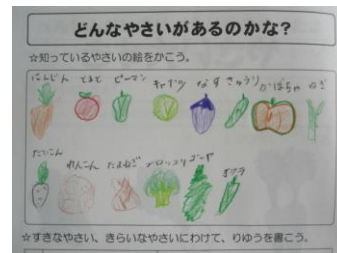 どんなやさいがあるのかな?
☆知っているやさいの絵をかこう。
にんじん とまと ピーマン キャベツ なす きゅうり かぼちゃ ねぎ
だいこん れんこん たまねぎ ブロッコリー ゴーヤ オクラ
☆すきなやさい、きらいなやさいにわけて、りゆうを書こう。